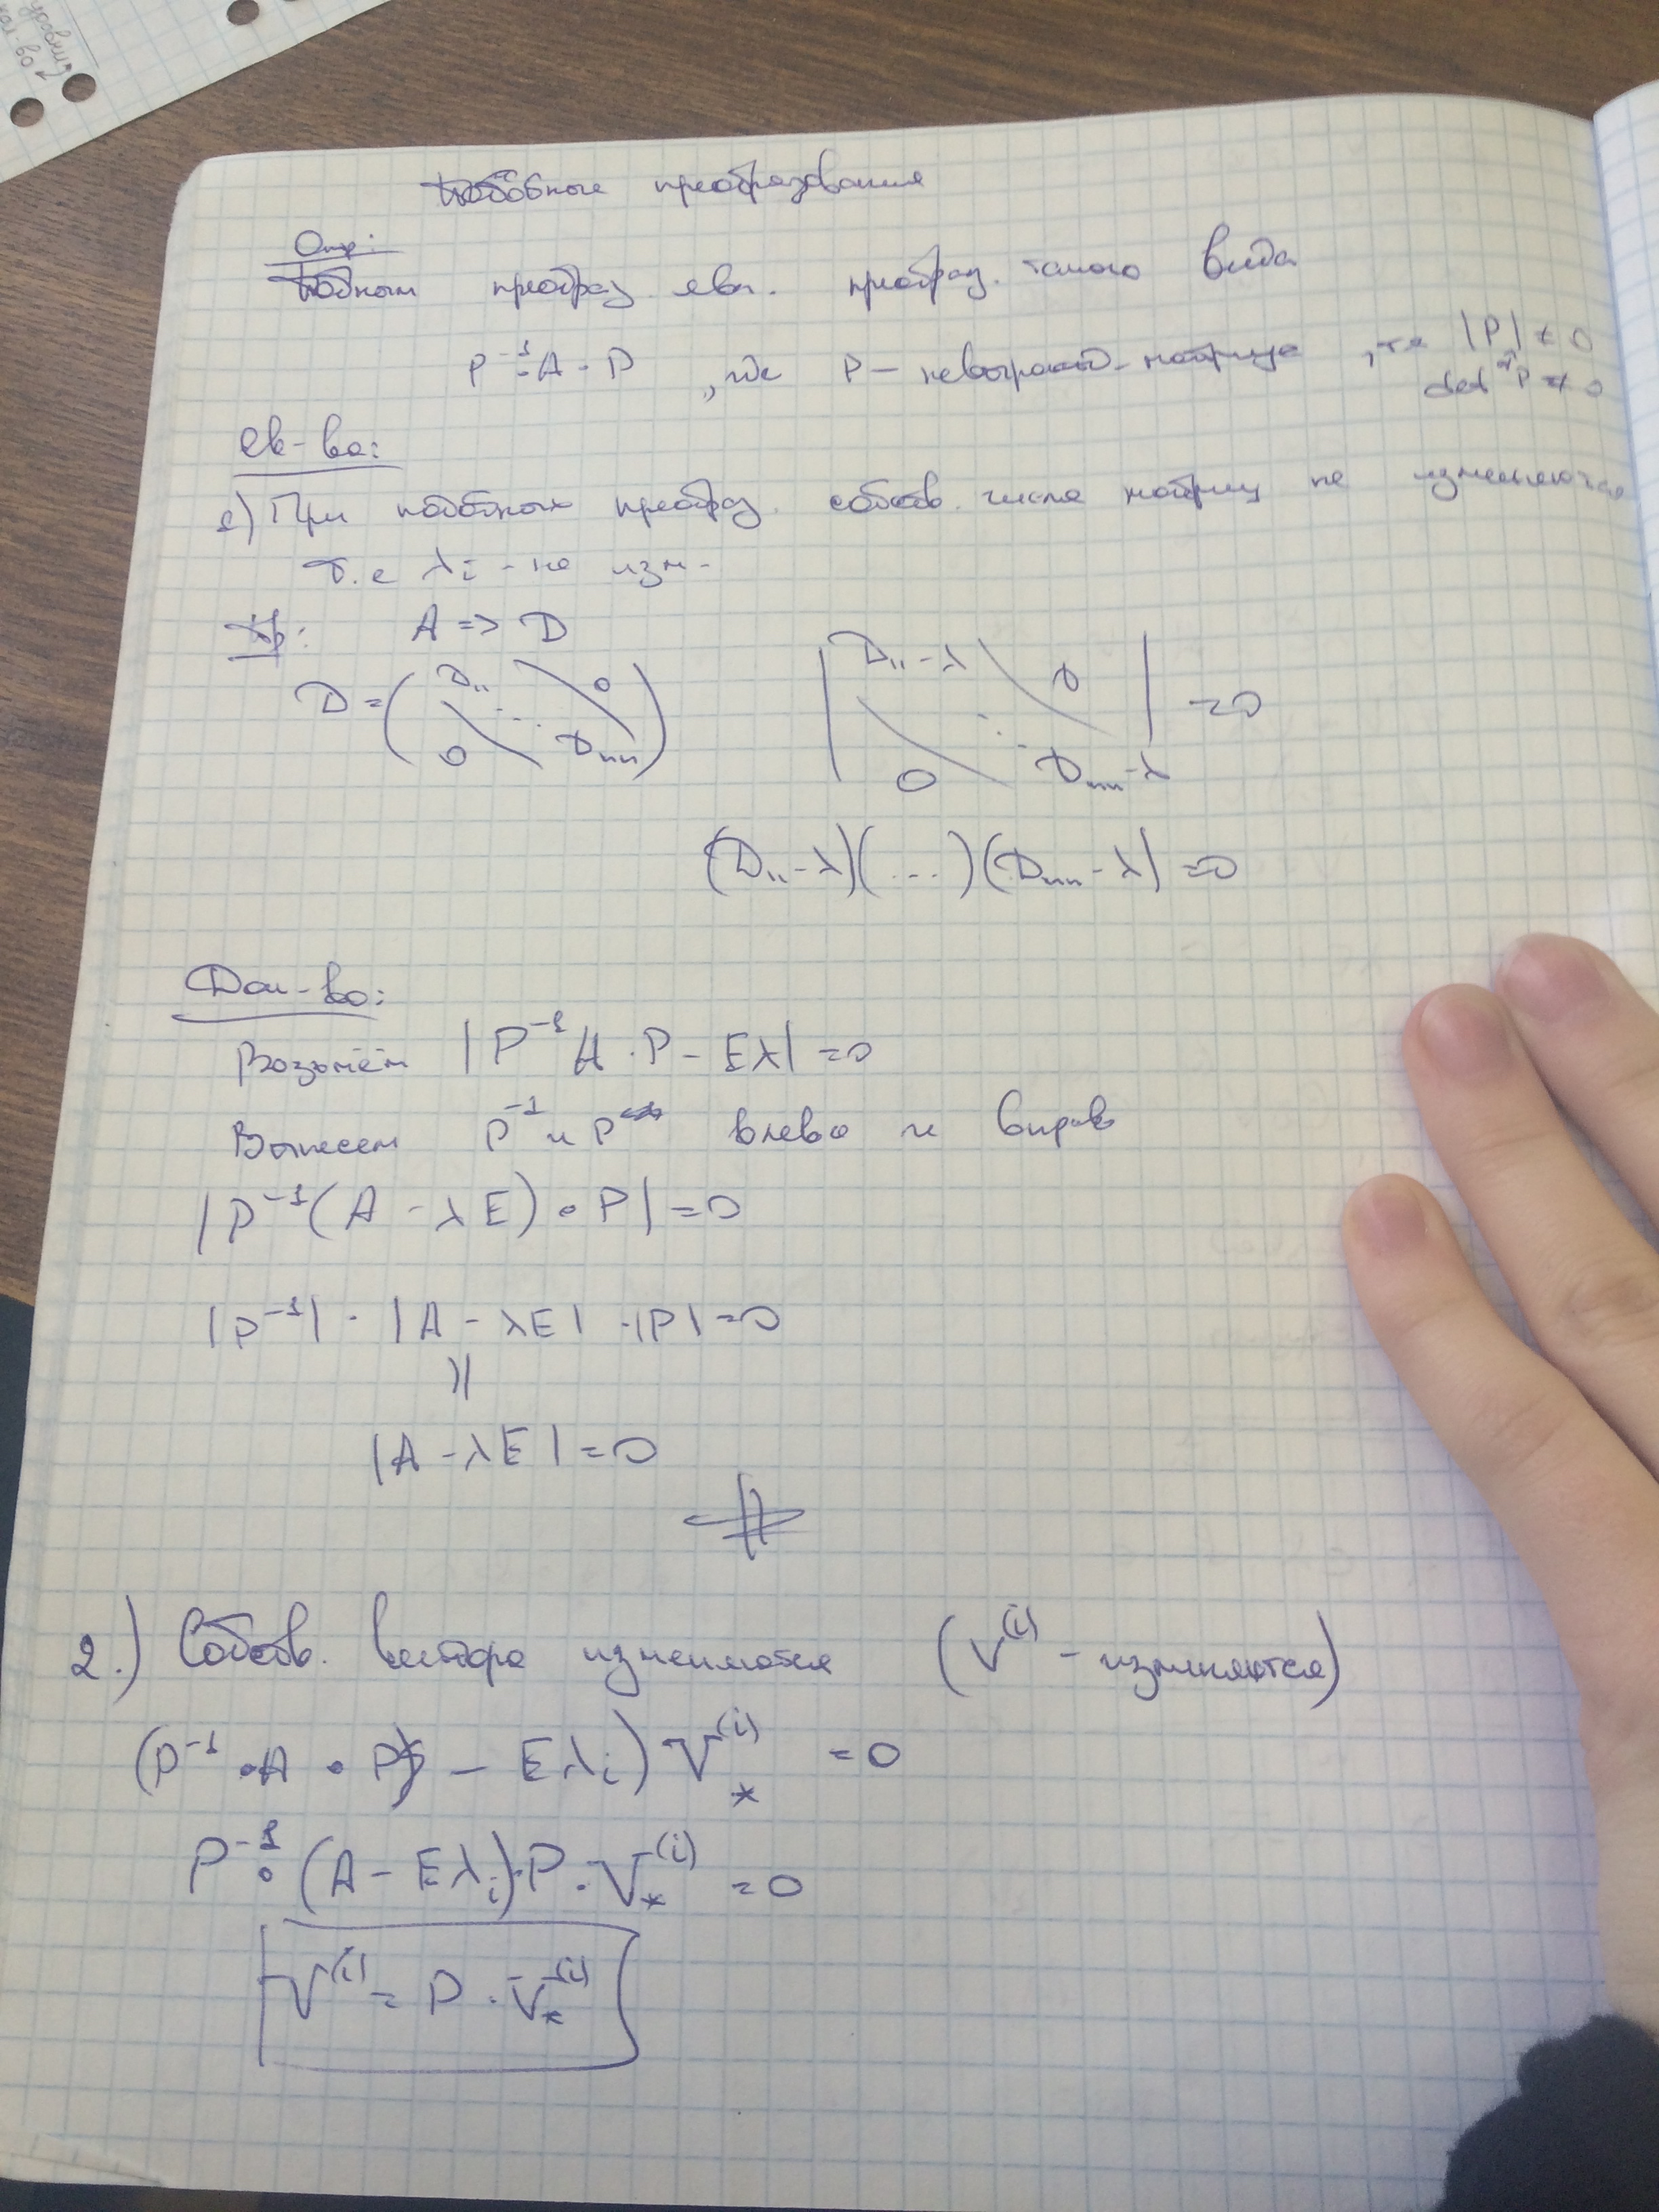 уровни
кол-во
Подобные преобразования
Опр:
Подбным преобраз. явл. преобраз. такого вида
P⁻¹·A·P , где P – невырожд. матрица , т.е |P| ≠ 0
det P ≠ 0
Св-ва:
1) При подобных преобраз. собств. числа матриц не изменяются
т.е λi - не изм.
A => D
D = ( D₁₁ 0 ⋱ 0 Dnn )
| D₁₁-λ 0 ⋱ 0 Dnn-λ | = 0
(D₁₁-λ)(...)(Dnn-λ) = 0
Док-во:
Возьмём |P⁻¹A·P - Eλ| = 0
Вынесем P⁻¹ и P влево и вправо
|P⁻¹(A - λE)·P| = 0
|P⁻¹|·|A - λE|·|P| = 0
||
|A - λE| = 0
#
2.) Собств. вектора изменяются (V⁽ⁱ⁾ - изменяются)
(P⁻¹·A·P - Eλi) V*⁽ⁱ⁾ = 0
P⁻¹·(A - Eλi)·P·V*⁽ⁱ⁾ = 0
V⁽ⁱ⁾ = P·V*⁽ⁱ⁾